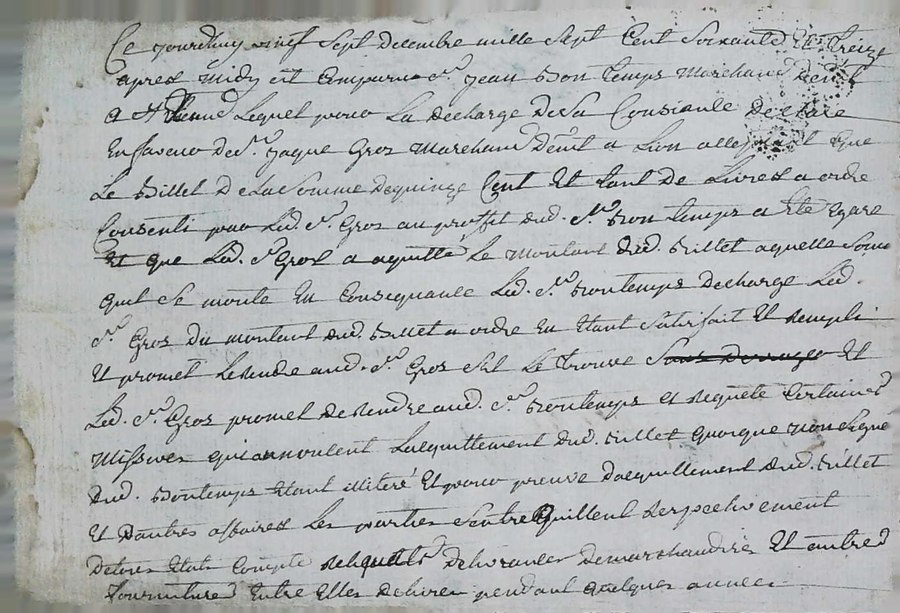 Ce jourdhuy vinf sept decembre mille sept cent soixante et treize
apres midy est comparu sr. jean bon temps marchand
a st lequel pour la decharge de sa consiance declare
en faveur de sr. jaque gros marchand a que
le billet de la somme de quinze cent et tant de livres a ordre
consenti par led. sr. gros au proffit dud. sr. bon temps a ete egare
et que led. sr gros a aquitté le montant dud. billet a quelle somme
quil se monte en consequance led. sr. bontemps decharge led.
sr. gros du montant dud. billet a ordre en etant satisfait et rempli
et promet le rendre aud. sr. gros sil le trouve et
led. sr. gros promet de rendre aud. sr. bontemps et certaines
missives qui lacquittement dud. billet quoique non signé
dud. bontemps etant illiteré et pour preuve dacquillement dud. billet
et dautres affaires les parties sentre quillent respectivement
de tout compte de marchandises et autres
fournitures entre elles pendant quelques annees